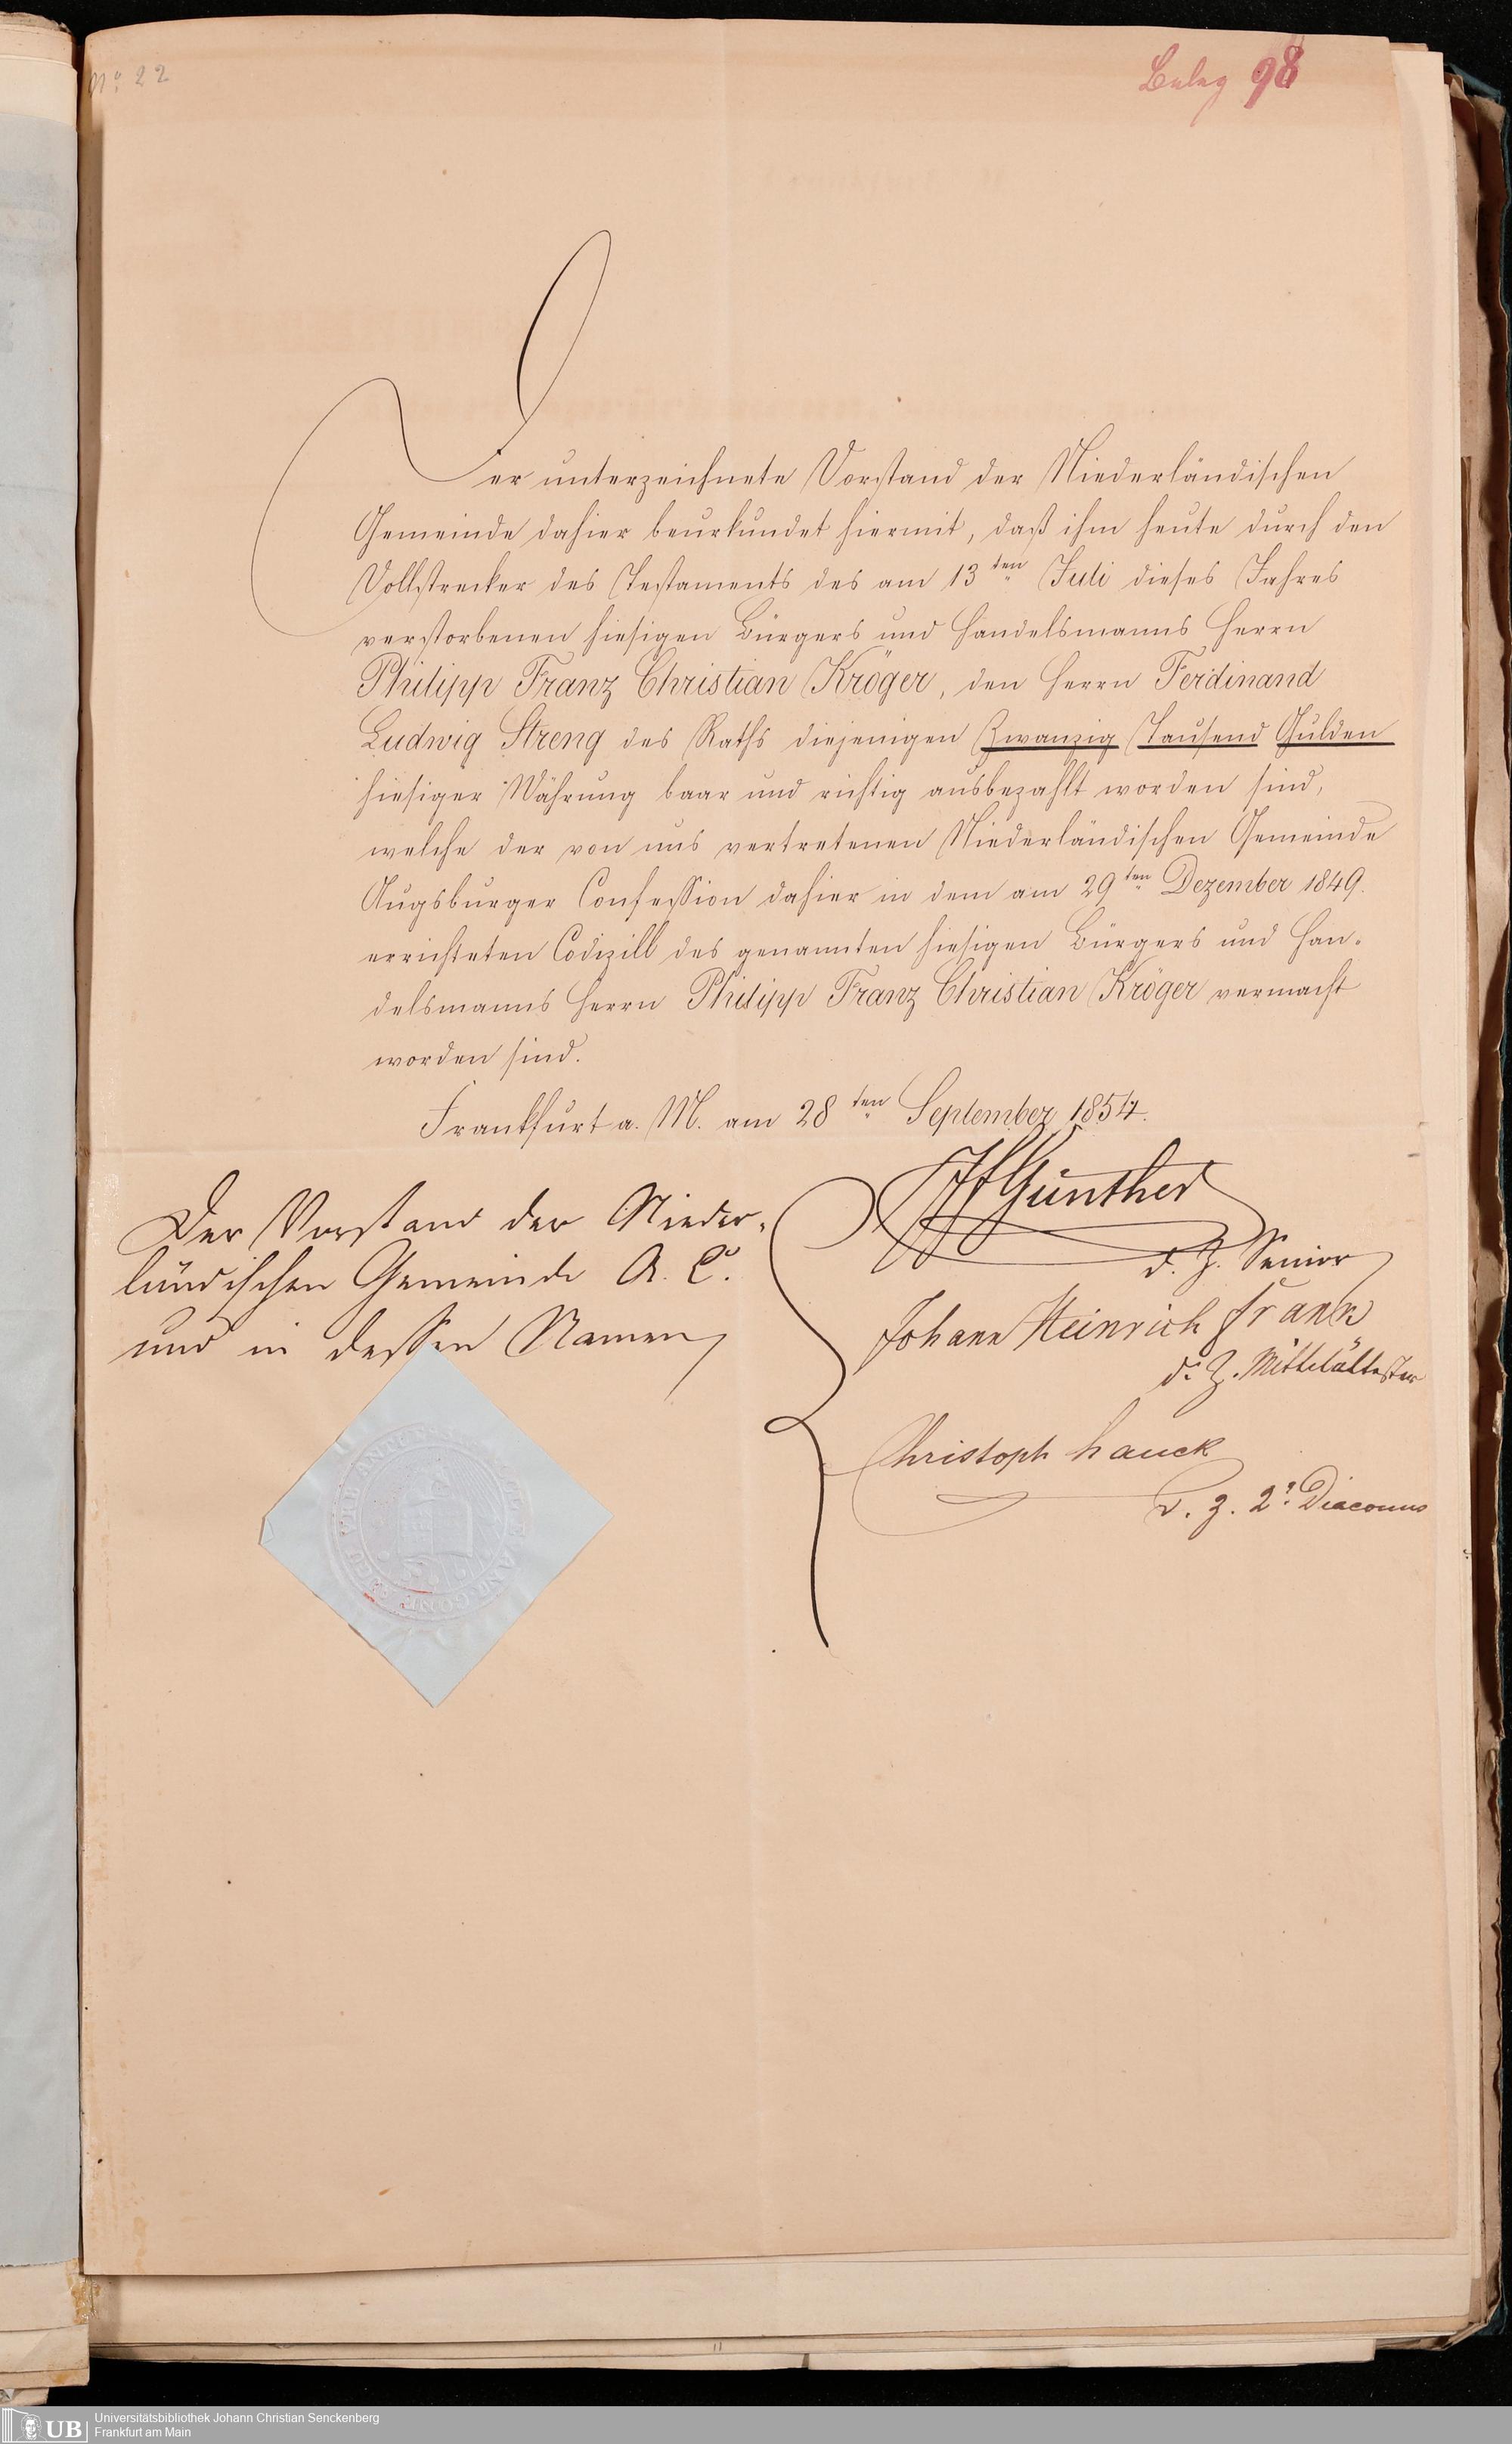 No. 22
Beleg 98
Der unterzeichnete Vorstand der Niederländischen
Gemeinde dahier beurkundet hiermit, daß ihm heute durch den
Vollstrecker des Testaments des am 13ten Juli dieses Jahres
verstorbenen hiesigen Bürgers und Handelsmanns Herrn
Philipp Franz Christian Kröger, den Herrn Ferdinand
Ludwig Streng des Raths diejenigen Zwanzig Tausend Gulden
hiesiger Währung baar und richtig ausbezahlt worden sind,
welche der von uns vertretenen Niederländischen Gemeinde
Augsburger Confession dahier in dem am 29ten Dezember 1849.
errichteten Codizill des genannten hiesigen Bürgers und Han-
delsmanns Herrn Philipp Franz Christian Kröger vermacht
worden sind.
Frankfurt a. M. am 28ten September 1854.
Der Vorstand der Nieder-
ländischen Gemeinde A. C.
und in dessen Namen
Günther
d. Z. Senior
Johann Heinrich Frank
d. Z. Mittelältester
Christoph Hauck
d. z. 2r Diaconus
UB
Universitätsbibliothek Johann Christian Senckenberg
Frankfurt am Main